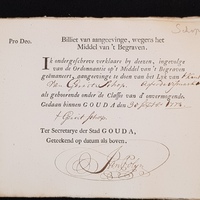 Pro Deo.
Billiet van aangeevinge, wegens het
Middel van 't Begraven.
IK ondergeschreve verklaare by deezen, ingevolge
van de Ordonnantie op 't Middel van 't Begraven
geëmaneert, aangeevinge te doen van het Lyk van
van Gerrit Schep
als gehoorende onder de Classe van d' onvermogende.
Gedaan binnen GOUDA, den
Gerrit Schep
Ter Secretarye der Stad GOUDA,
Geteekend op datum als boven.